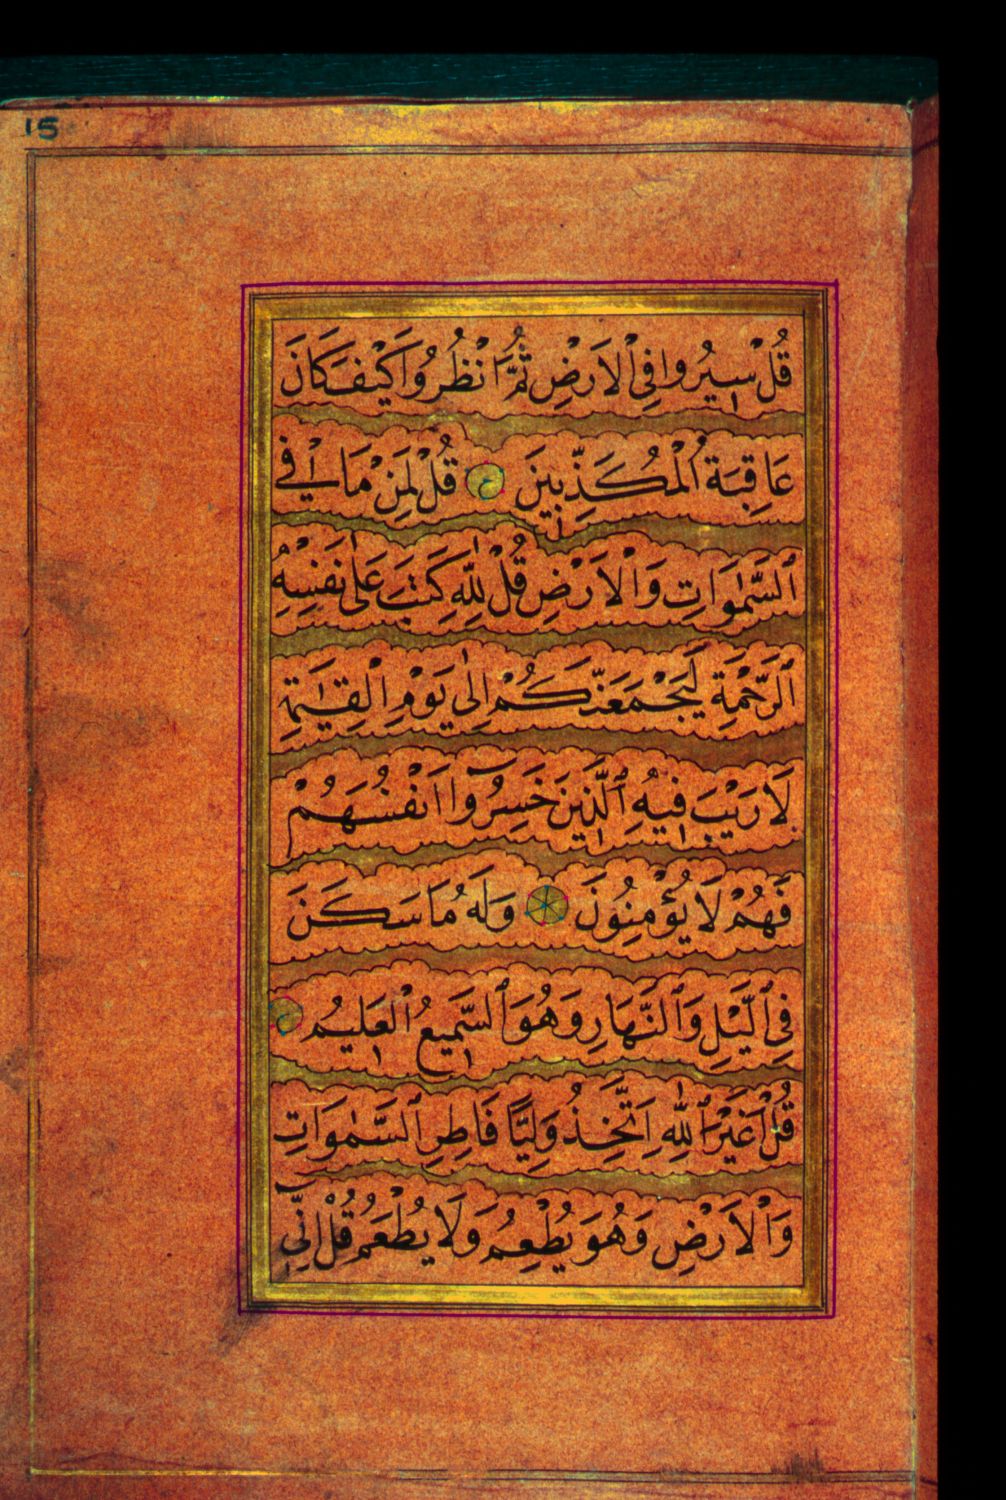 15
قُلْ سِيرُوا فِي الْاَرْضِ ثُمَّ انْظُرُوا كَيْفَ كَانَ
عَاقِبَةُ الْمُكَذِّبِينَ قُلْ لِمَنْ مَا فِي
السَّمٰوَاتِ وَالْاَرْضِ قُلْ لِلّٰهِ كَتَبَ عَلٰى نَفْسِهِ
الرَّحْمَةَ لَيَجْمَعَنَّكُمْ اِلٰى يَوْمِ الْقِيٰمَةِ
لَا رَيْبَ فِيهِ اَلَّذِينَ خَسِرُٓوا اَنْفُسَهُمْ
فَهُمْ لَا يُؤْمِنُونَ وَلَهُ مَا سَكَنَ
فِي الَّيْلِ وَالنَّهَارِ وَهُوَ السَّمِيعُ الْعَلِيمُ
قُلْ اَغَيْرَ اللّٰهِ اَتَّخِذُ وَلِيًّا فَاطِرِ السَّمٰوَاتِ
وَالْاَرْضِ وَهُوَ يُطْعِمُ وَلَا يُطْعَمُ قُلْ اِنِّٓي